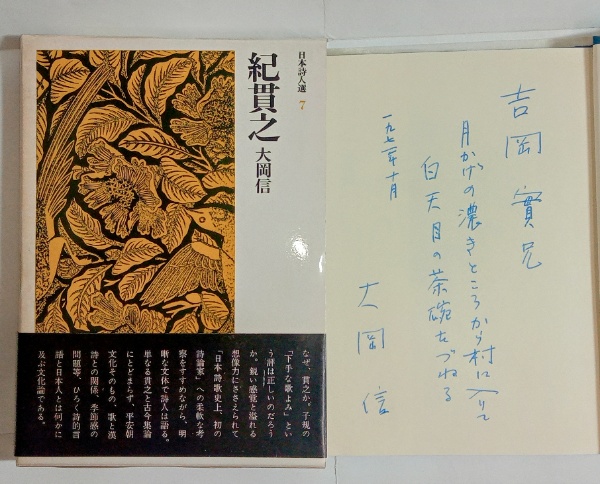 日本詩人選 7
紀貫之
大岡信
なぜ、貫之か。子規の
「下手な歌よみ」とい
う評は正しいのだろう
か。鋭い感覚と溢れる
想像力にささえられて
「日本詩歌史上、初の
詩論家」への柔軟な考
察をすすめながら、明
晰な文体で詩人は語る。
単なる貫之と古今集論
にとどまらず、平安朝
文化そのもの、歌と漢
詩との関係、季節感の
問題等、ひろく詩的言
語と日本人とは何かに
及ぶ文化論である。
吉岡實兄
月かげの濃きところから村に入りて
白天目の茶碗をづねる
一九七一年十月
大岡信